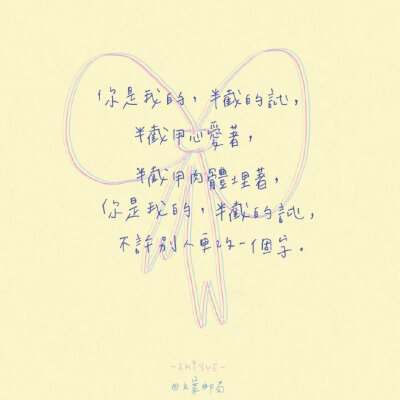 你是我的，半截的詩，
半截用心愛著，
半截用肉體埋著，
你是我的，半截的詩，
不許別人更改一個字。
-ZHIYUE-
@文案邮局